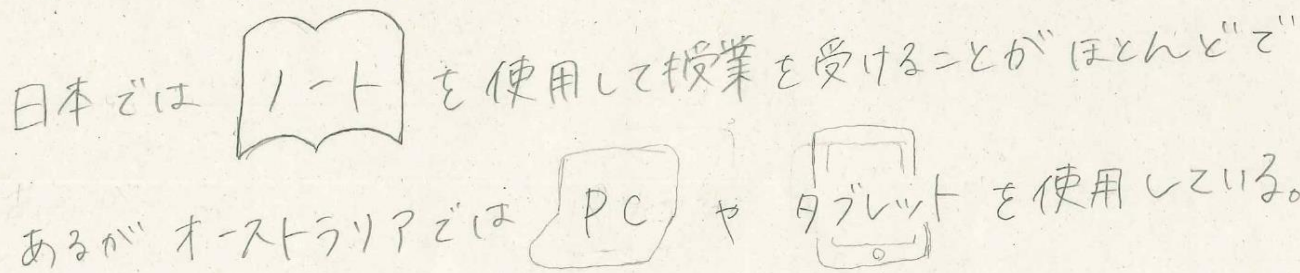 日本では ノート を使用して授業を受けることがほとんどで
あるがオーストラリアでは PC や タブレット を使用している。